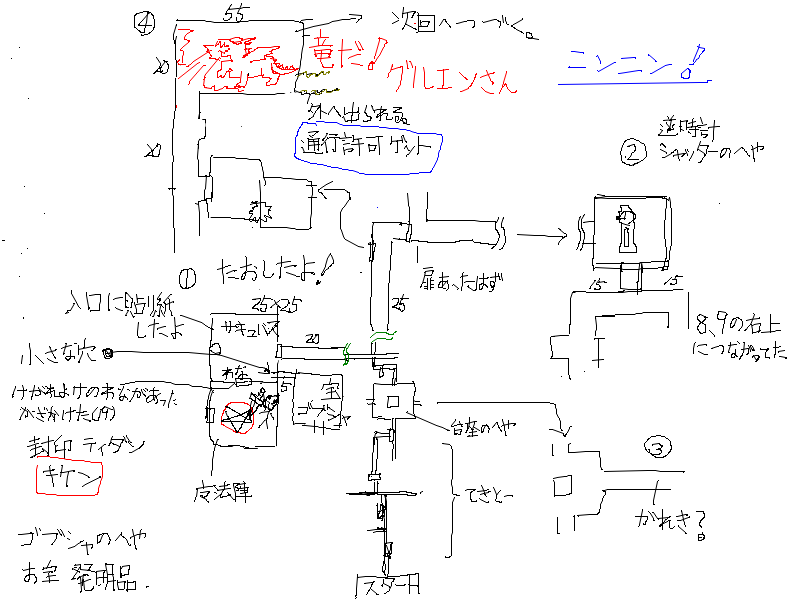 ④
55
次回へつづく。
20
竜だ!
グルエンさん
ニンニン!
外へ出られる。
通行許可ゲット
20
② 逆時計
シャッターのへや
① たおしたよ!
扉あったはず
15
15
入口に貼り紙
したよ
25×25
サキュバス
20
25
8、9の右上
につながってた
小さな穴
わな
5
宝
ゴブシャ
けがれよけのわながあった
台座のへや
封印 ティダン
キケン
魔法陣
てきとー
③
がれき?
ゴブシャのへや
お宝 発明品.
スタート